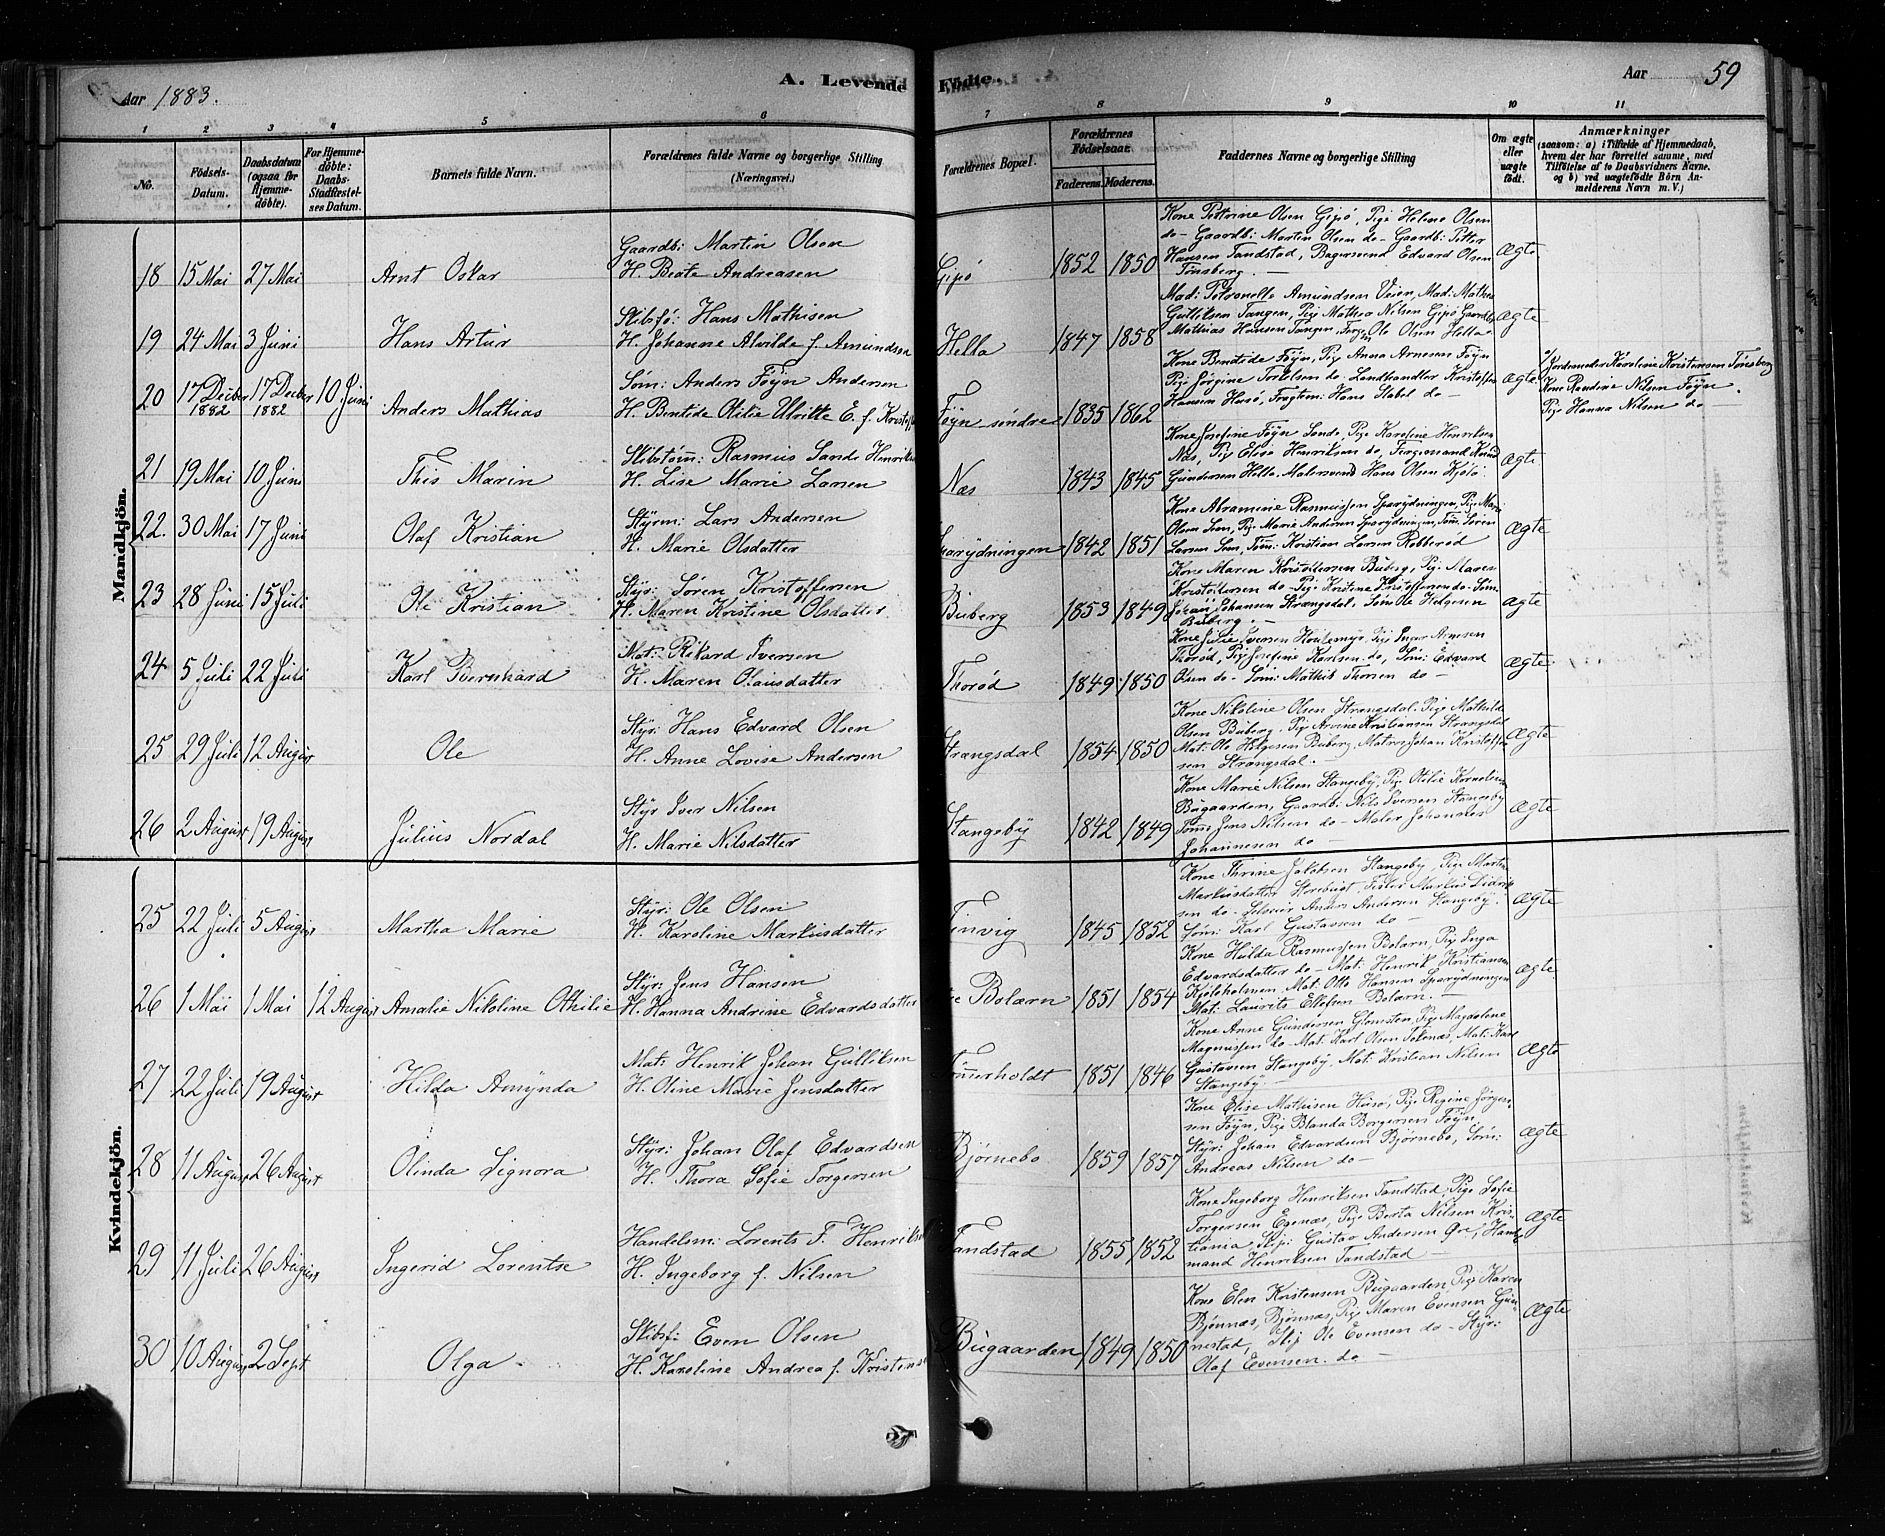 Aar 1883.
A. Levende Fødte.
Aar 59
1 2 3 4 5 6 7 8 9 10 11
No.
Födsels-Datum.
Daabsdatum (ogsaa for Hjemmedöbte).
For Hjemmedöbte: Daabs-Stadfæstelses Datum.
Barnets fulde Navn.
Forældrenes fulde Navne og borgerlige Stilling
(Næringsvei.)
Forældrenes Bopæl.
Forældrenes Födselsaar.
Faderens. Moderens.
Faddernes Navne og borgerlige Stilling
Om ægte eller uægte födt.
Anmærkninger
(saasom: a) i Tilfælde af Hjemmedaab, hvem der har forrettet samme, med Tilföielse af to Daabsvidners Navne, og b) ved uægtefödte Börn Anmelderens Navn m. V.)
Mandkjön.
18 15 Mai 27 Mai Arnt Oskar
Gaardb: Martin Olsen
H. Beate Andreasen
Gipø 1852 1850
Kone Petrine Olsen Gipø, Pige Helene Olsen
do – Gaardb: Martin Olsen do – Gaardb: Petter
Hansen Tandstad, Bagersvend Edvard Olsen
Tønsberg. –
Ægte
19 24 Mai 3 Juni Hans Artur
Skibsfø: Hans Mathisen
H. Johanne Alvilde f. Amundsen
Hella 1847 1858
Mad: Petronelle Amundsen Veien, Mad: Mathea
Gulliksen Tangen, Pige Mathea Nilsen Gipø
Mathias Hansen Tangen, Ole Olsen Hella
Ægte
20 17 Decbr 1882 17 Decber 1882 10 Juni Anders Mathias
Søm: Anders Føyn Andersen
H. Bentide Otilie Ulrikke E. f. Kristoff
Føyn søndre 1835 1862
Kone Bentede Føyn, Pig Anna Arnesen Føyn
Pige Jørgine Torkelsen do Landhandler Kristoffer
Hansen Husø, Fragtem: Hans Stabel do –
Ægte
a/ Jordemoder Karoline Kristensen Tønsberg
Kone Randine Nilsen Føyn
Pige Hanna Nilsen do –
21 19 Mai 10 Juni This Marin
Skibstøm: Rasmus Sande Henriks
H. Lise Marie Larsen
Næs 1843 1845
Kone Josefine Føyn Sande, Pige Karoline Henriksen
Næs, Pige Elise Henriksen do, Færgemand Knud
Gundersen Hella. Malersvend Hans Olsen Kjølø
Ægte
22. 30 Mai 17 Juni Olaf Kristian
Styrm: Lars Andersen
H. Marie Olsdatter
Sparydningen 1842 1851
Kone Abramine Rasmussen Sparydningen, Pige Maria
Olsen Sem, Pige Marie Andersen Sparydningen, Tøm. Søren
Larsen Sem, Tøm: Kristian Larsen Robberød
Ægte
23 28 Juni 15 Juli Ole Kristian
Styr: Søren Kristoffersen
H. Maren Kristine Olsdatter
Buberg 1853 1849
Kone Maren Kristoffersen Buberg, Pige Maren
Kristoffersen do – Pige Kristine Kristoffersen do – Søm.
Johan Johansen Strængsdal, Søm Ole Helgesen
Buberg. –
Ægte
24 5 Juli 22 Juli Karl Bernhard
Mat: Rikard Iversen
H. Maren Olausdatter
Thorød 1849 1850
Kone Julie Iversen Pige Inger Arnesen
Thorød, Pige Josefine Karlsen do, Søm: Edvard
Olsen do – Søm: Mathis Thorsen do –
Ægte
25 29 Juli 12 August Ole
Styr: Hans Edvard Olsen
H. Anne Lovise Andersen
Strangsdal 1854 1850
Kone Nikoline Olsen Strangsdal. Pige Mathilde
Olsen Buberg. Pig Arvine Kristiansen Strangsdal
Mat: Ole Helgesen Buberg, Matros Johan Kristoffer
sen Strængsdal. –
Ægte
26 2 August 19 August Julius Nordal
Styr Iver Nilsen
H. Marie Nilsdatter
Stangeby 1842 1849
Kone Marie Nilsen Stangeby, Pige Otilie Kornelius
Bugaarden, Gaardb: Nils Iversen Stangeby
Tøm: Jens Nilsen do – Maler Johannes
Johannesen do –
Ægte
Kvindekjön.
25 22 Juli 5 August Martha Marie
Styr: Ole Olsen
H. Karoline Markusdatter
Vinvig 1845 1852
Kone Thrine Jakobsen Stangeby, Pige Martin
Markusdatter Storebugt. Fisker Markus Didrik
sen do – Selveier Anders Andersen Stangeby.
Søm: Karl Gustavsen do –
Ægte
26 1 Mai 1 Mai 12 August Amalie Nikoline Othilie
Styr: Jens Hansen
H. Hanna Andrine Edvardsdatter
Bolærn 1851 1854
Kone Hulda Rasmussen Bolærn, Pig Inga
Edvardsdatter do – Mat: Henrik Kristiansen
Kjøleholmen Mat: Otto Hansen Sparydningen
Mat: Laurits Ellefsen Bolærn. –
Ægte
27 22 Juli 19 August Hilda Amynda
Mat: Henrik Johan Gulliksen
H. Oline Marie Jensdatter
1851 1846
Kone Anne Gundersen Glomsten, Pige Magdalene
Magnussen do – Mat: Karl Olsen Teknæs, Mat: Karl
Gustavsen Stangeby, Mat: Kristian Nilsen
Stangeby –
Ægte
28 11 August 26 August Olinda Signora
Styr: Johan Olaf Edvardsen
H. Thora Sofie Torgersen
Bjørnebo 1859 1857
Kone Elise Mathisen Husø, Pige Regine Jørgen
sen Føyn, Pige Blanda Borgersen Føyn,
Styr: Johan Edvardsen Bjørnebo, Søm:
Andreas Nilsen do –
Ægte
29 11 Juli 26 August Ingerid Lorentse
Handelsm: Lorents F. Henriks
H. Ingeborg f. Nilsen
Tandstad 1855 1852
Kone Ingeborg Henriksen Tandstad, Pige Sofie
Torgersen Egenæs, Pige Berta Nilsen Kris-
tiania, Skip: Gustav Andersen
mand Henriksen Tandstad –
Ægte
30 10 August 2 Sept Olga
Skibsf: Even Olsen
H. Karoline Andrea f. Kristens
Bugaarden 1849 1850
Kone Elen Kristensen Bugaarden, Pige Karen
Bjønnæs, Bjønnæs, Pige Maren Evensen Gun-
nestad, Skip Ole Evensen do – Styr:
Olaf Evensen. do –
Ægte